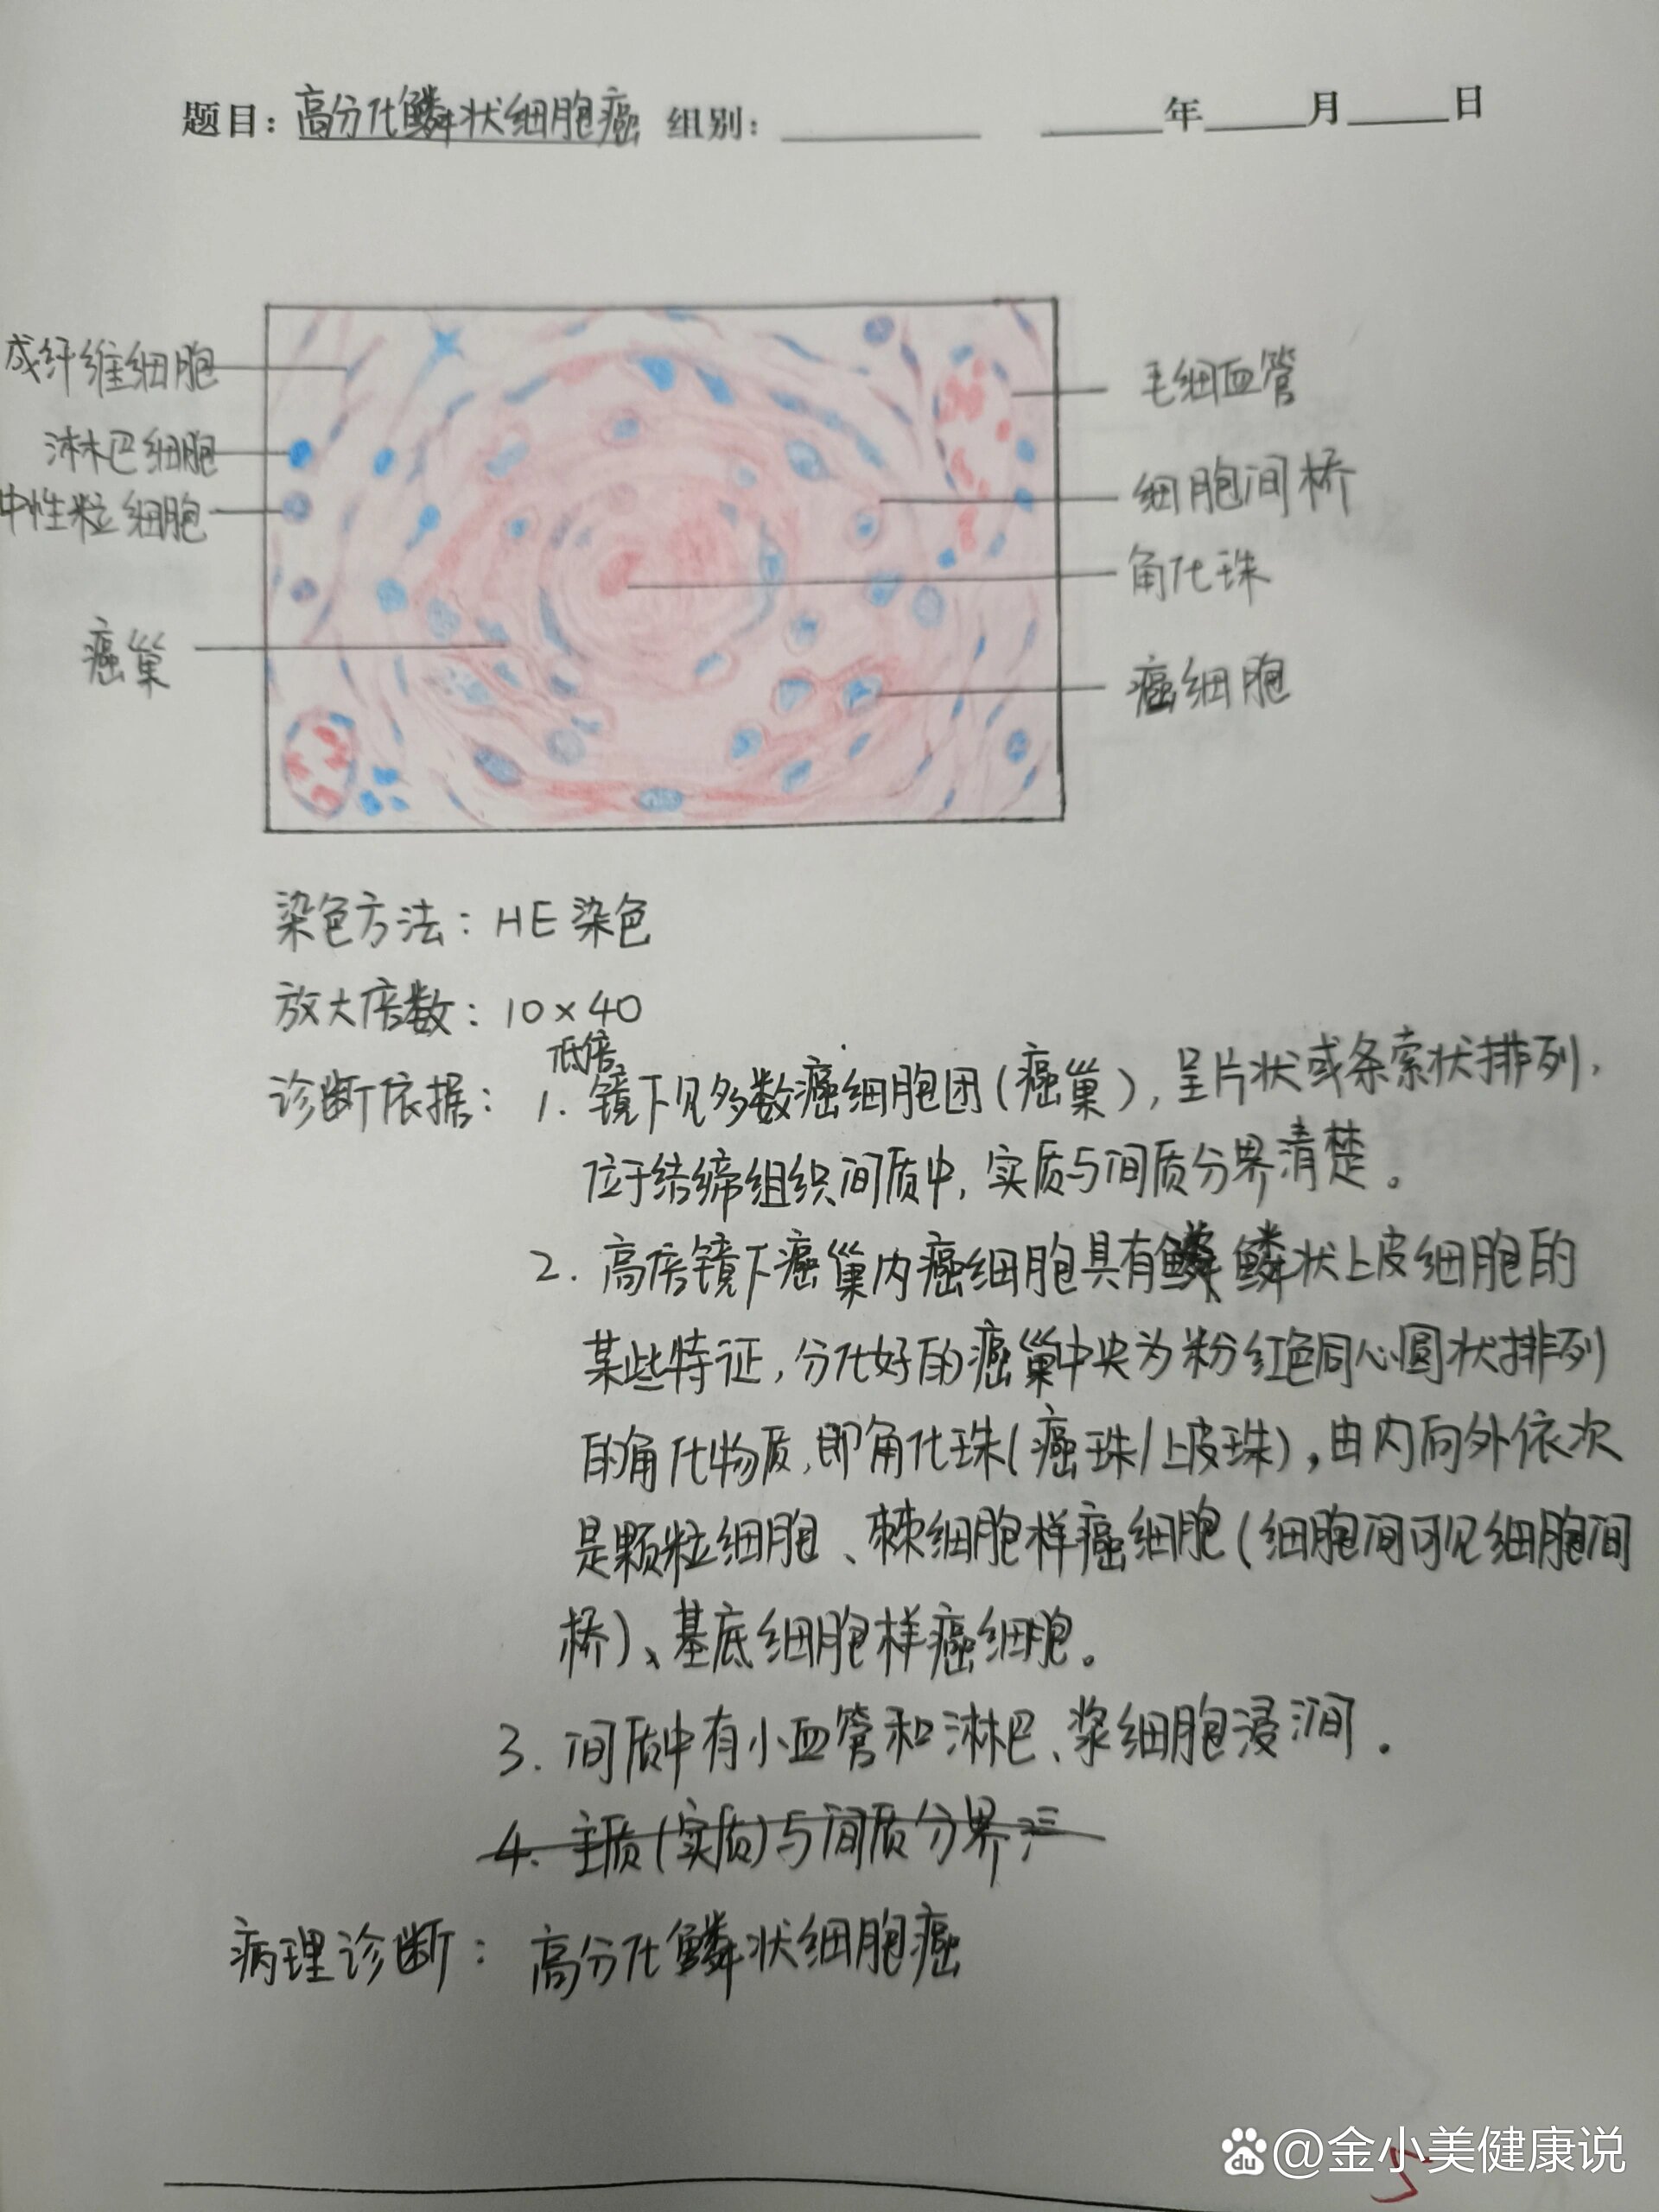 题目：高分化鳞状细胞癌 组别：    年  月  日
成纤维细胞
淋巴细胞
中性粒细胞
癌巢
毛细血管
细胞间桥
角化珠
癌细胞
染色方法：HE染色
放大倍数：10×40
低倍
诊断依据：1. 镜下见多数癌细胞团（癌巢），呈片状或条索状排列，
位于结缔组织间质中，实质与间质分界清楚。
2. 高倍镜下癌巢内癌细胞具有鳞状上皮细胞的
某些特征，分化好的癌巢中央为粉红色同心圆状排列
的角化物质，即角化珠（癌珠/上皮珠），由内向外依次
是颗粒细胞、棘细胞样癌细胞（细胞间可见细胞间
桥）、基底细胞样癌细胞。
3. 间质中有小血管和淋巴、浆细胞浸润．
4. 主质（实质）与间质分界
病理诊断：高分化鳞状细胞癌
du @金小美健康说
5